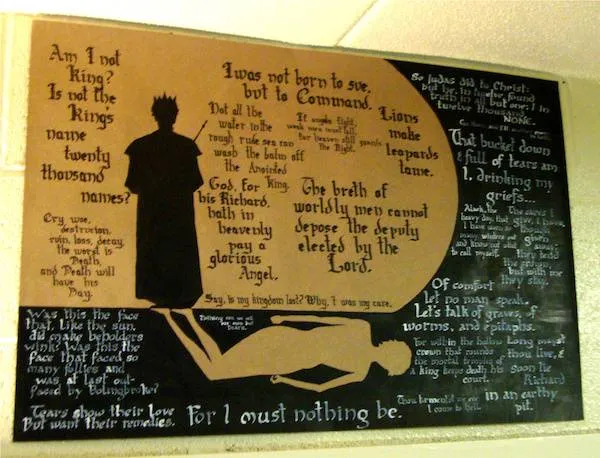 Am I not
King?
Is not the
Kings
name
twenty
thousand
names?
Cry woe,
destruction,
ruin, loss, decay,
the worst is
Death,
and Death will
have his
Day.
I was not born to sue,
but to Command.
Not all the
water in the
rough rude sea can
wash the balm off
the Anointed
King.
If angels fight,
weak men must fall,
for heaven still guards
the Right.
Lions
make
leopards
tame.
God, for
his Richard,
hath in
heavenly
pay a
glorious
Angel.
The breth of
worldly men cannot
depose the deputy
elected by the
Lord.
Say, is my kingdom lost? Why, T was my care.
So Judas did to Christ:
but he, in twelve, found
truth in all but one; I in
twelve thousand
NONE.
That bucket down
& full of tears am
I, drinking my
griefs...
The cares I
give, I have,
though
given
away;
They tend
the crown,
but with me
they stay.
Of comfort
let no man speak.
Let's talk of graves, of
worms, and epitaphs.
For within the hollow
crown that rounds
the mortal temples of
a king keeps death his
court.
Long mayst
thou live, &
Soon lie
Richard
in an earthy
pit.
Was this the face
that, Like the sun,
did make beholders
wink? Was this the
face that faced so
many follies and
was at last out-
faced by Bolingbroke?
Tears show their Love
But want their remedies.
For I must nothing be.